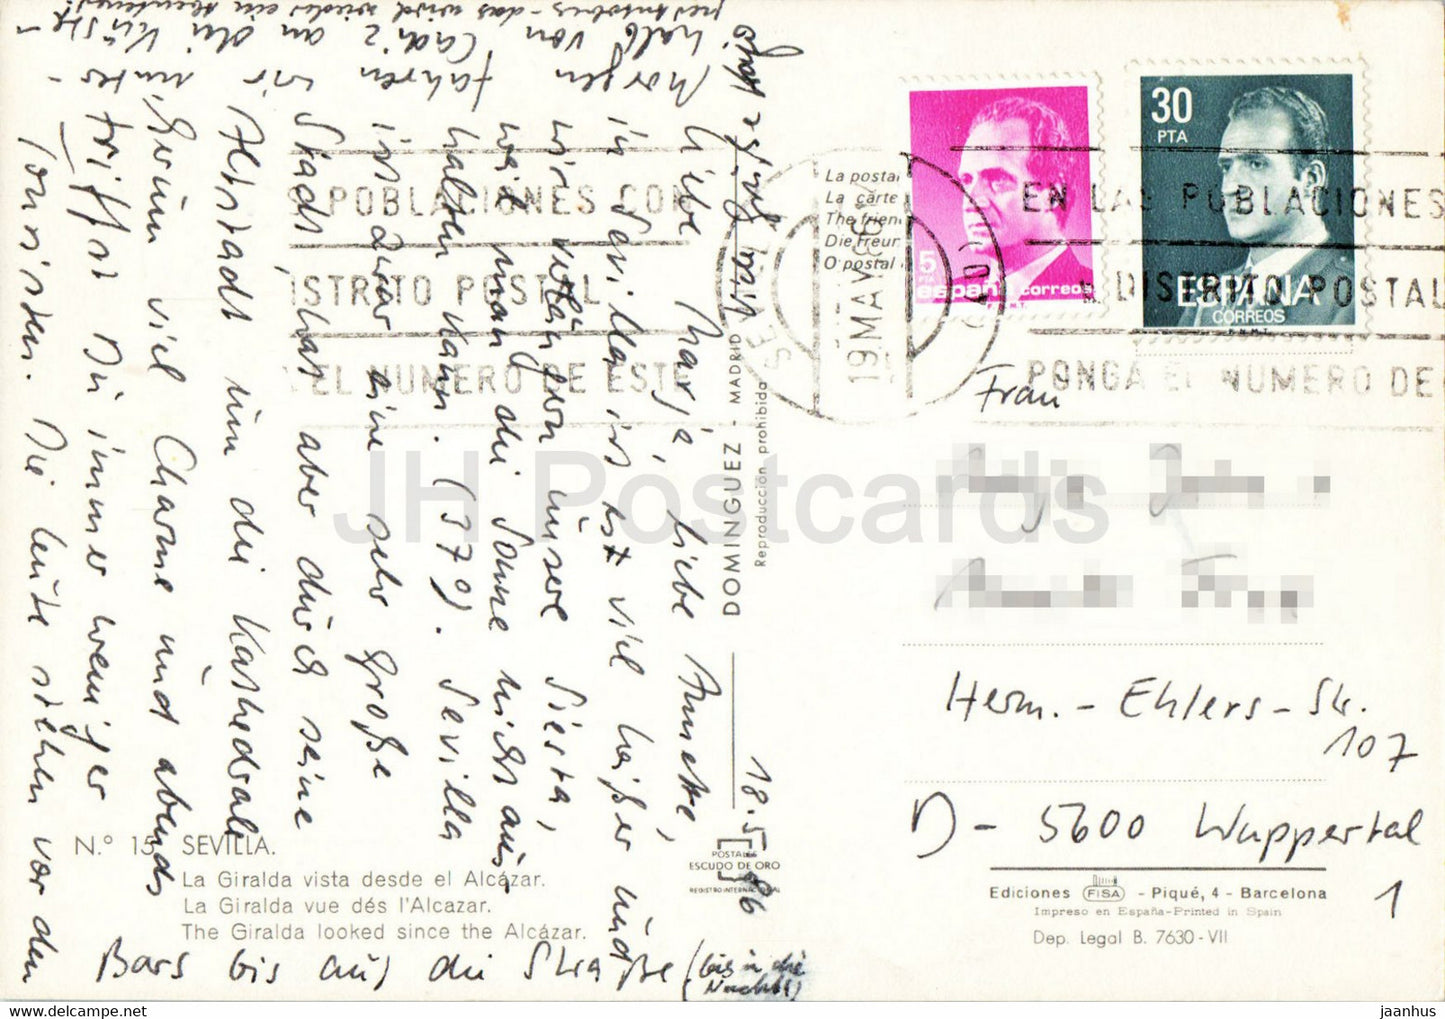 18.5.86
Liebe Marja, liebe Annette,
in Sevilla ist es viel heißer und
wir verlängern unsere Siesta,
weil man die Sonne nicht aus-
halten kann. (37°). Sevilla
ist zwar eine sehr große
Stadt, hat aber durch seine
Altstadt um die Kathedrale
herum viel Charme und abends
triffst Du immer weniger
Touristen. Die Leute sitzen vor den
Bars bis auf die Straße (bis in die
Nacht!)
Morgen fahren wir unter-
halb von Cadiz an die Küste -
das wird wieder ein
Viele Grüße
30
PTA
ESPAÑA
CORREOS
F.N.M.T.
5
PTA
españa correos
F.N.M.T.
EN LAS POBLACIONES CON
DISTRITO POSTAL
PONGA EL NUMERO DE ESTE
SEVILLA
19 MAY 86
La postal
La carte
The frien
Die Freun
O postal
Frau
Herm.-Ehlers-Str.
107
D- 5600 Wuppertal
1
DOMINGUEZ - MADRID
Reproducción prohibida
POSTALES
ESCUDO DE ORO
REGISTRO INTERNACIONAL
N.º 15 SEVILLA.
La Giralda vista desde el Alcázar.
La Giralda vue dés l'Alcazar.
The Giralda looked since the Alcázar.
Ediciones FISA - Piqué, 4 - Barcelona
Impreso en España-Printed in Spain
Dep. Legal B. 7630-VII
JH Postcards
www.delcampe.net
jaanhus